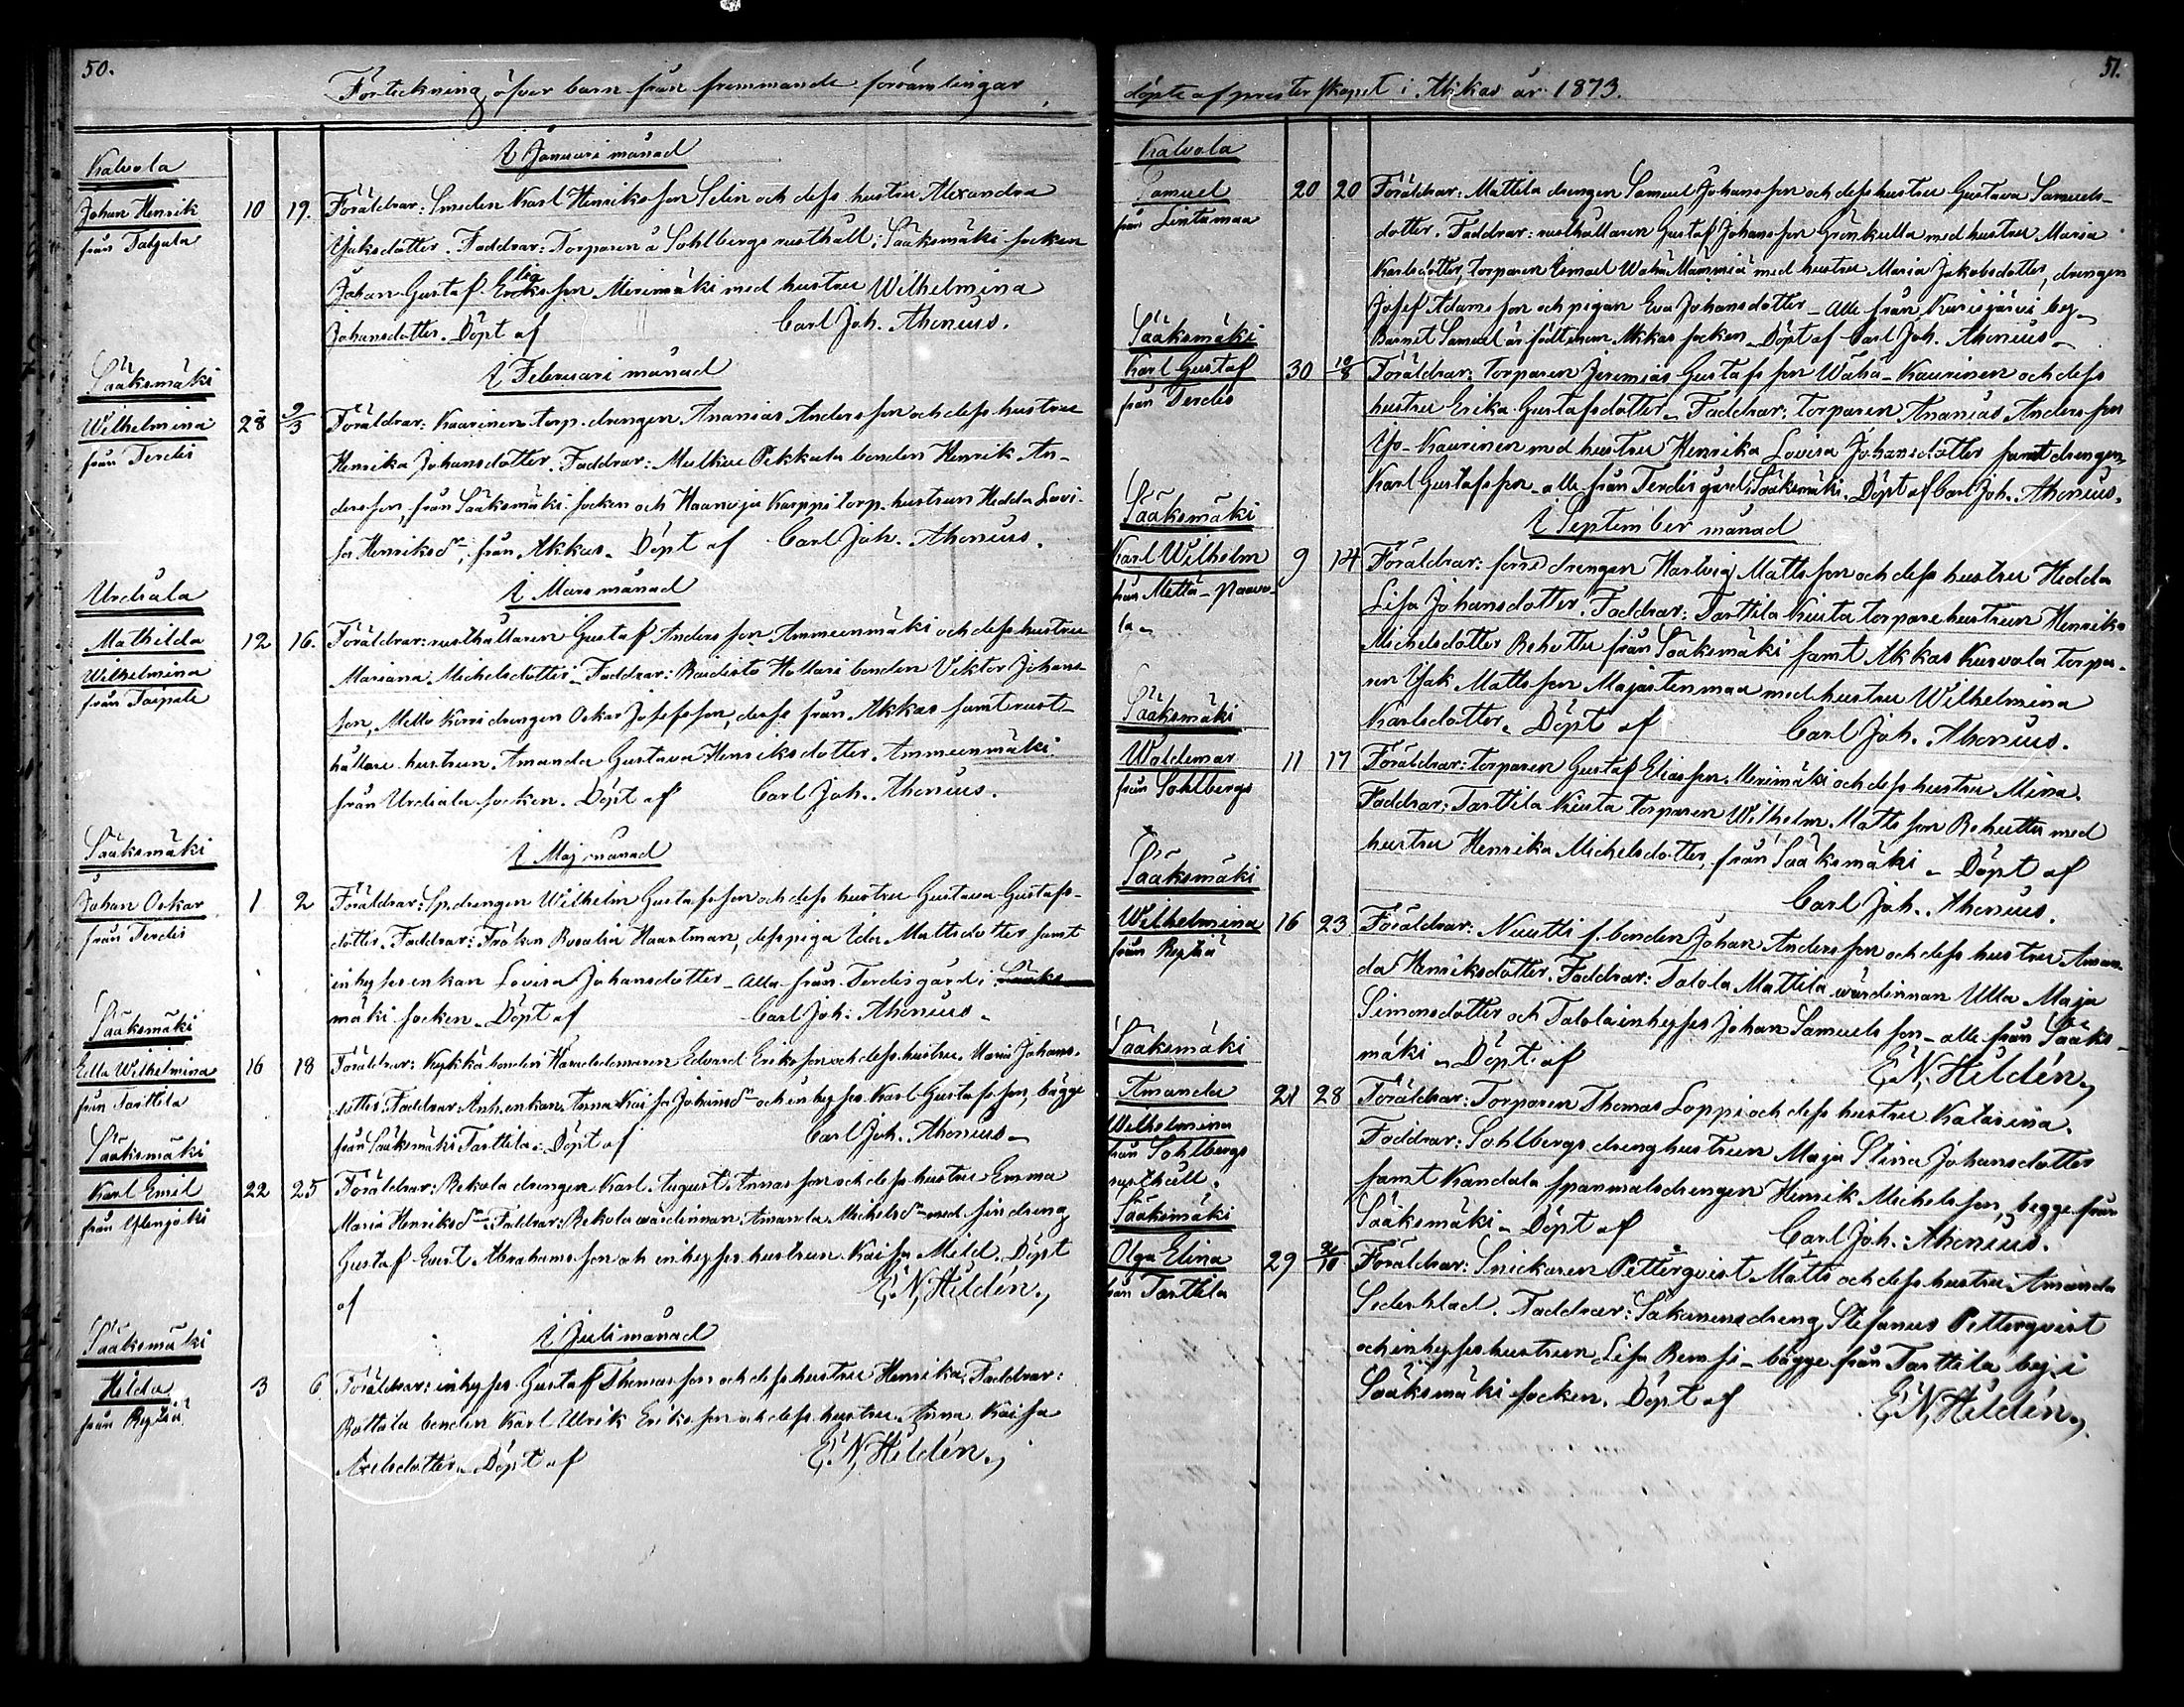 50.
Förteckning öfver barn från fremmande församlingar
I Januari månad
Kalvola
Johan Henrik 10 19. Föräldrar: Smeden Karl Henriksson Selin och dess hustru Alexandra
från Talgala
Isaksdotter. Faddrar: Torparen å Sohlbergs rusthåll i Sääksmäki socken
Johan Gustaf Eliasson Merimäki med hustru Wilhelmina
Johansdotter. Döpt af Carl Joh. Ahonius.
I Februari månad
Sääksmäki
Wilhelmina 28 9/3 Föräldrar: Kaurinen torp. drengen Ananias Andersson och dess hustru
från Terdis
Henrika Johansdotter. Faddrar: Mulkue Pekkala bonden Henrik An-
dersson, från Sääksmäki socken och Haanoja Karppi torp. hustrun Hedda Lovi-
sa Henriksdr, från Akkas. Döpt af Carl Joh. Ahonius.
I Mars månad
Urdiala
Mathilda 12 16. Föräldrar: rusthållaren Gustaf Andersson Ammeenmäki och dess hustru
Wilhelmina
från
Mariana Michelsdotter. Faddrar: Raidisto Hollari bonden Viktor Johans-
son, Mello Korri drengen Oskar Josefsson, desse från Akkas samt rust-
hållare hustrun Amanda Gustava Henriksdotter Ammeenmäki
från Urdiala socken. Döpt af Carl Joh. Ahonius.
I Maj månad
Sääksmäki
Johan Oskar 1 2 Föräldrar: Sp.drengen Wilhelm Gustafsson och dess hustru Gustava Gustafs-
från Terdis
dotter. Faddrar: Fröken Rosalia Haartman, dess piga Ida Mattsdotter samt
inhyses enkan Lovisa Johansdotter – Alla från Terdis gård i Sääks-
mäki socken. Döpt af Carl Joh. Ahonius.
Sääksmäki
Edla Wilhelmina 16 18 Föräldrar: Kykkä bonden Häradsdomaren Edvard Eriksson och dess hustru Maria Johans-
från Tarttila
dotter. Faddrar: Enkan Anna Kaisa Johansdr och inhyses Karl Gustafsson, bägge
från Sääksmäki Tarttila. Döpt af Carl Joh. Ahonius.
Sääksmäki
Karl Emil 22 25 Föräldrar: Rekola drengen Karl August Annasson och dess hustru Emma
från Ylenjoki
Maria Henriksdr. Faddrar: Rekola wärdinnan Amanda Michelsdr med sin dreng
Gustaf Evert Abrahamsson och inhyses hustrun Kaisa Mild. Döpt
af E. N. Hildén.
I Juli månad
Sääksmäki
Hilda 3 6 Föräldrar: inhyses Gustaf Thomasson och dess hustru Henrika. Faddrar:
från
Rattila bonden Karl Ulrik Eriksson och dess hustru Anna Kaisa
Axelsdotter. Döpt af E. N. Hildén.
51.
döpte af presterskapet i Akkas år 1873.
Kalvola
Samuel 20 20 Föräldrar: Mattila drengen Samuel Johansson och dess hustru Gustava Samuels-
från Lintumaa
dotter. Faddrar: rusthållaren Gustaf Johansson Grönkulla med hustru Maria
Karlsdotter, torparen Esmael Wähä Mämmiä med hustru Maria Jakobsdotter, drengen
Josef Adamsson och pigan Eva Johansdotter – alle från Kurisjärvi by.
Barnet Samuel är född inom Akkas socken. Döpt af Carl Joh. Ahonius.
Sääksmäki
Karl Gustaf 30 10/8 Föräldrar: torparen Jeremias Gustafsson Wähä-Kaurinen och dess
från Terdis
hustru Erika Gustafsdotter. Faddrar: torparen Ananias Andersson
Iso-Kaurinen med hustru Henrika Lovisa Johansdotter samt drengen
Karl Gustafsson – alle från Terdis gård i Sääksmäki. Döpt af Carl Joh. Ahonius.
I September månad
Sääksmäki
Karl Wilhelm 9 14 Föräldrar: förre drengen Hartvig Mattsson och dess hustru Hedda
från Mettä-Paavo-
la
Lisa Johansdotter. Faddrar: Tarttila Kiuta torpare hustrun Henrika
Michelsdotter Rehutta från Sääksmäki samt Akkas Kurvola torpa-
ren Isak Mattsson Majastenmaa med hustru Wilhelmina
Karlsdotter. Döpt af Carl Joh. Ahonius.
Sääksmäki
Woldemar 11 17 Föräldrar: torparen Gustaf Eliasson Merimäki och dess hustru Mina.
från Sohlbergs
Faddrar: Tarttila Kiuta torparen Wilhelm Mattsson Rehutta med
hustru Henrika Michelsdotter, från Sääksmäki. Döpt af
Carl Joh. Ahonius.
Sääksmäki
Wilhelmina 16 23 Föräldrar: Nuutti f. bonden Johan Andersson och dess hustru Aman-
från
da Henriksdotter. Faddrar: Talola Mattila wärdinnan Ulla Maja
Simonsdotter och Talola inhyses Johan Samuelsson – alle från Sääks-
mäki. Döpt af E. N. Hildén.
Sääksmäki
Amanda 21 28 Föräldrar: Torparen Thomas Loppi och dess hustru Katarina.
Wilhelmina
från Sohlbergs
rusthåll.
Faddrar: Sohlbergs drenghustrun Maja Stina Johansdotter
samt Kandala spanmålsdrengen Henrik Michelsson, begge från
Sääksmäki. Döpt af Carl Joh. Ahonius.
Sääksmäki
Olga Elina 29 Föräldrar: Snickaren Petterqvist Matts och dess hustru Amanda
från Tarttila
Sederblad. Faddrar: Sakarinens dreng Stefanus Petterqvist
och inhyses hustrun Lisa Remsi – bägge från Tarttila by i
Sääksmäki socken. Döpt af E. N. Hildén.